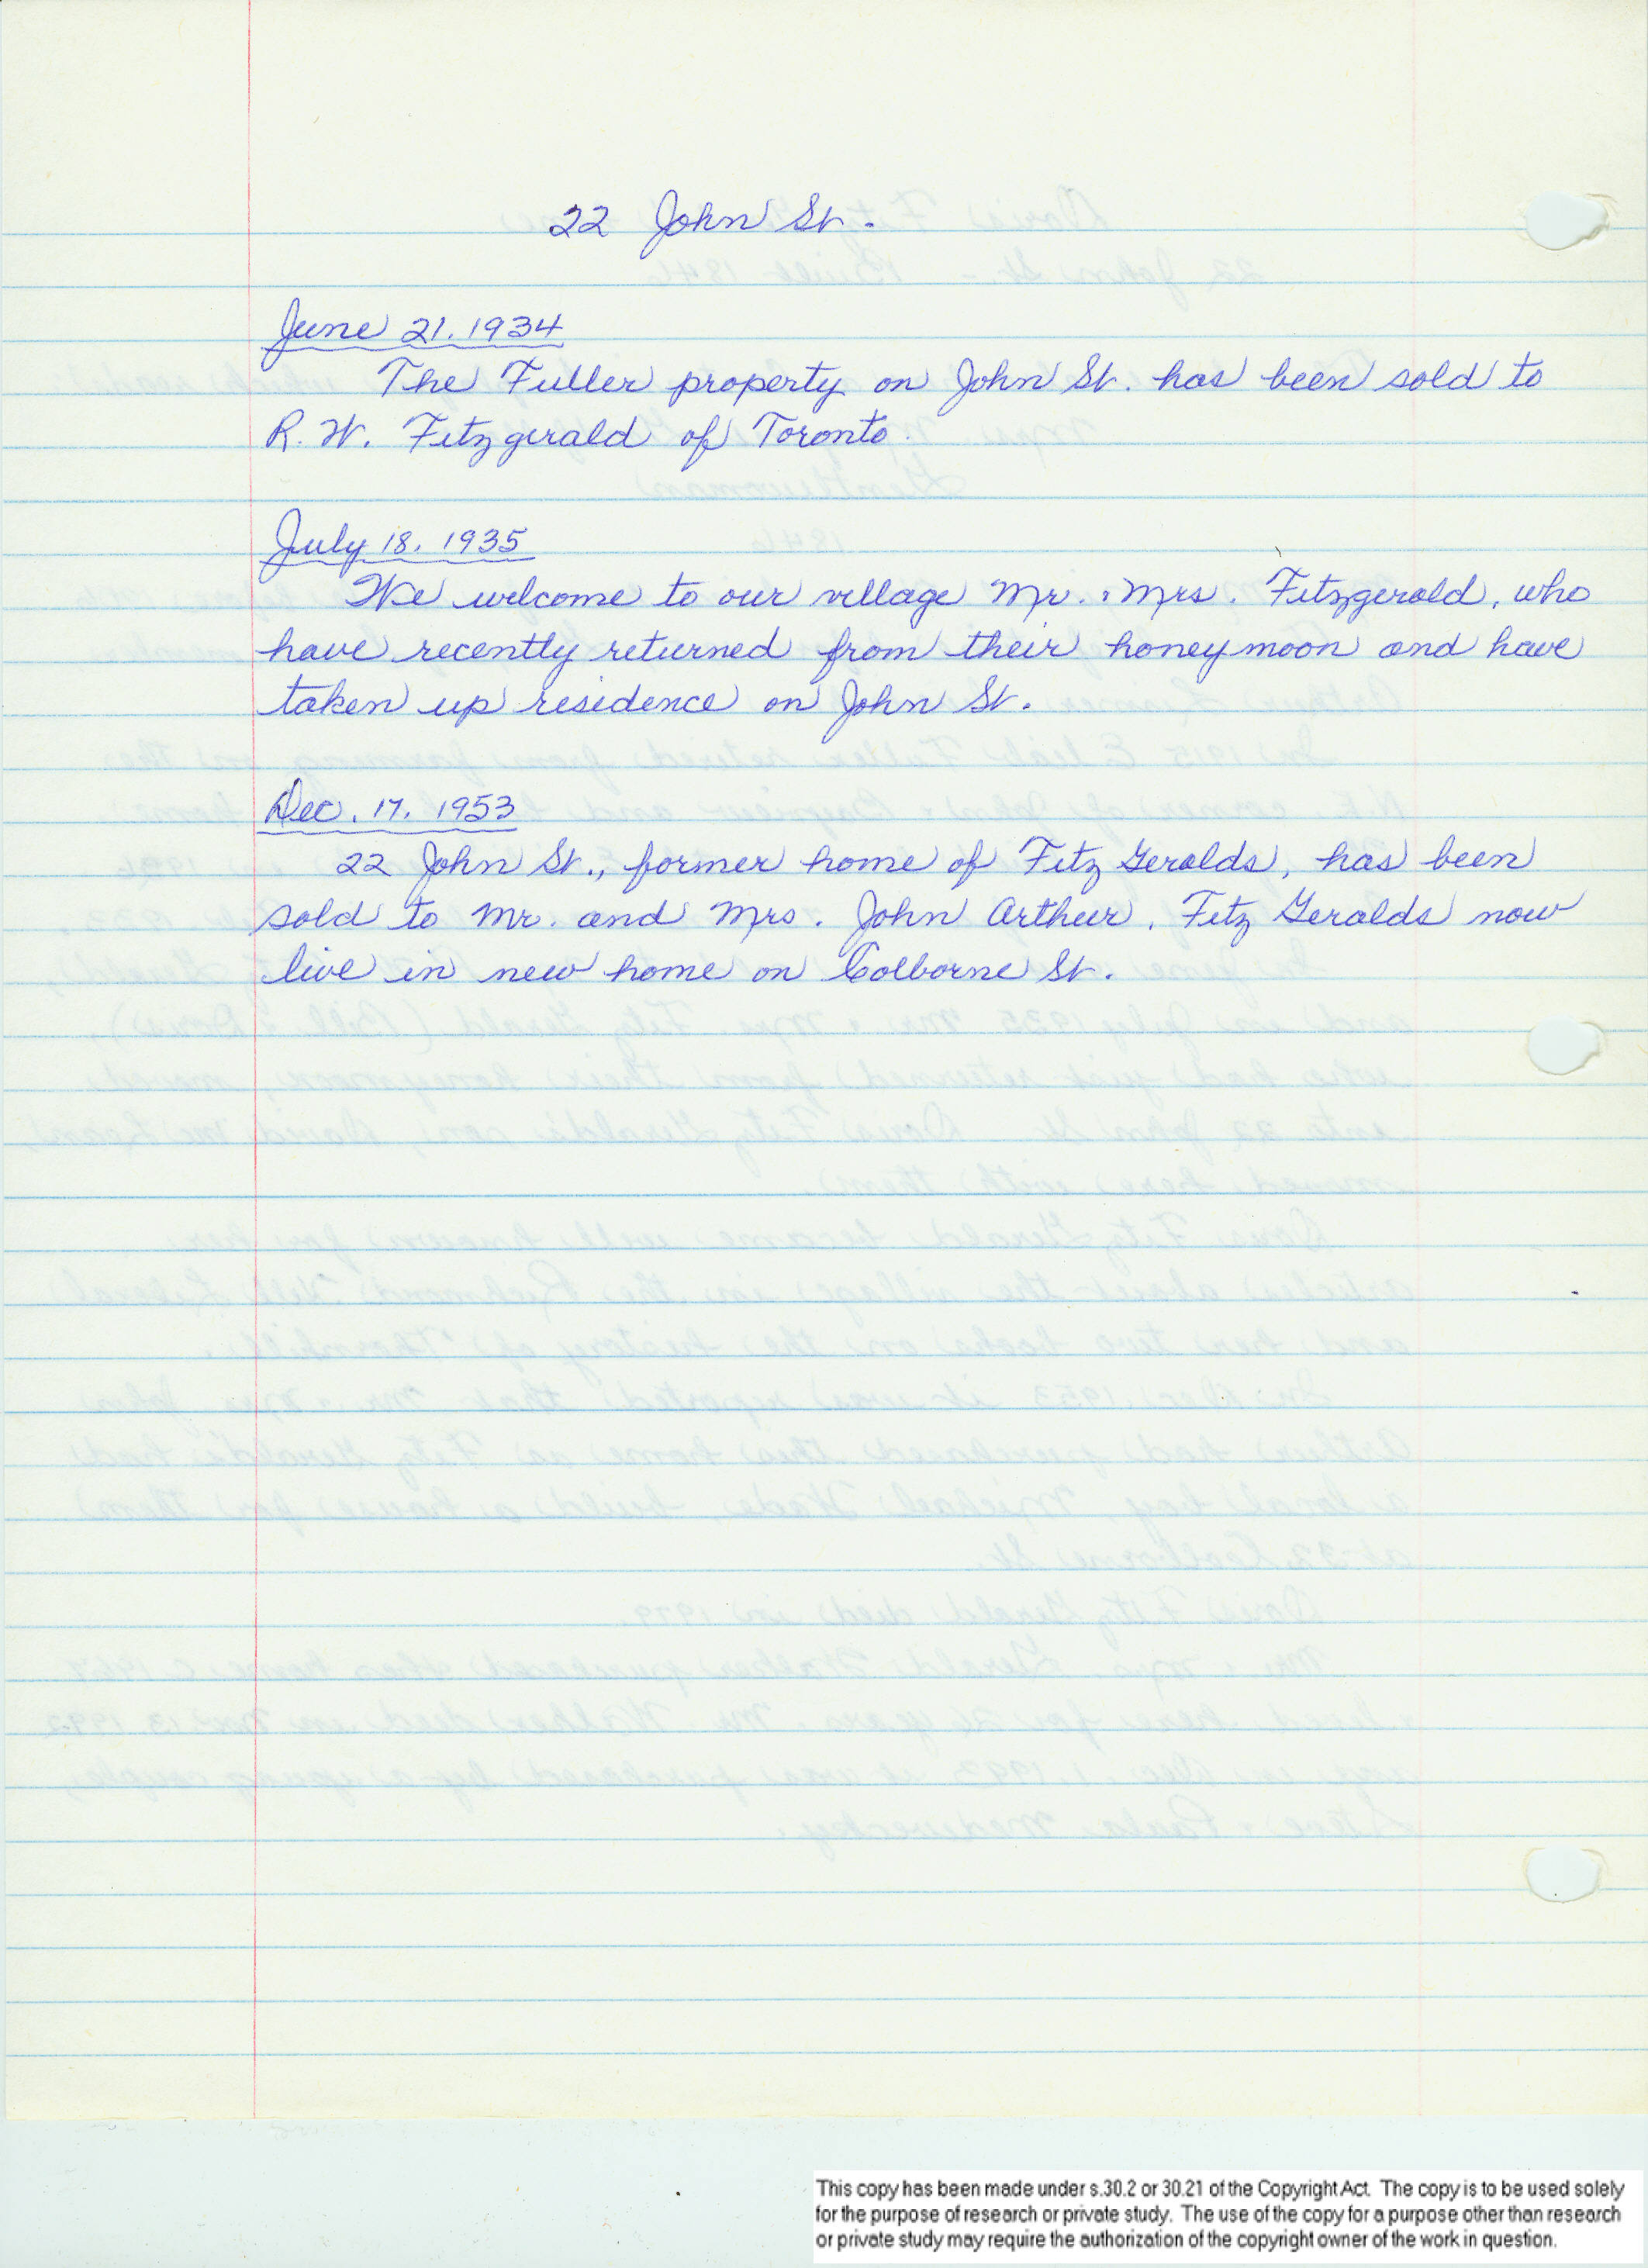 22 John St.
June 21. 1934
The Fuller property on John St. has been sold to
R. W. Fitzgerald of Toronto.
July 18. 1935
We welcome to our village Mr. & Mrs. Fitzgerald, who
have recently returned from their honeymoon and have
taken up residence on John St.
Dec. 17. 1953
22 John St., former home of Fitz Geralds, has been
sold to Mr. and Mrs. John Arthur. Fitz Geralds now
live in new home on Colborne St.
This copy has been made under s.30.2 or 30.21 of the Copyright Act. The copy is to be used solely
for the purpose of research or private study. The use of the copy for a purpose other than research
or private study may require the authorization of the copyright owner of the work in question.